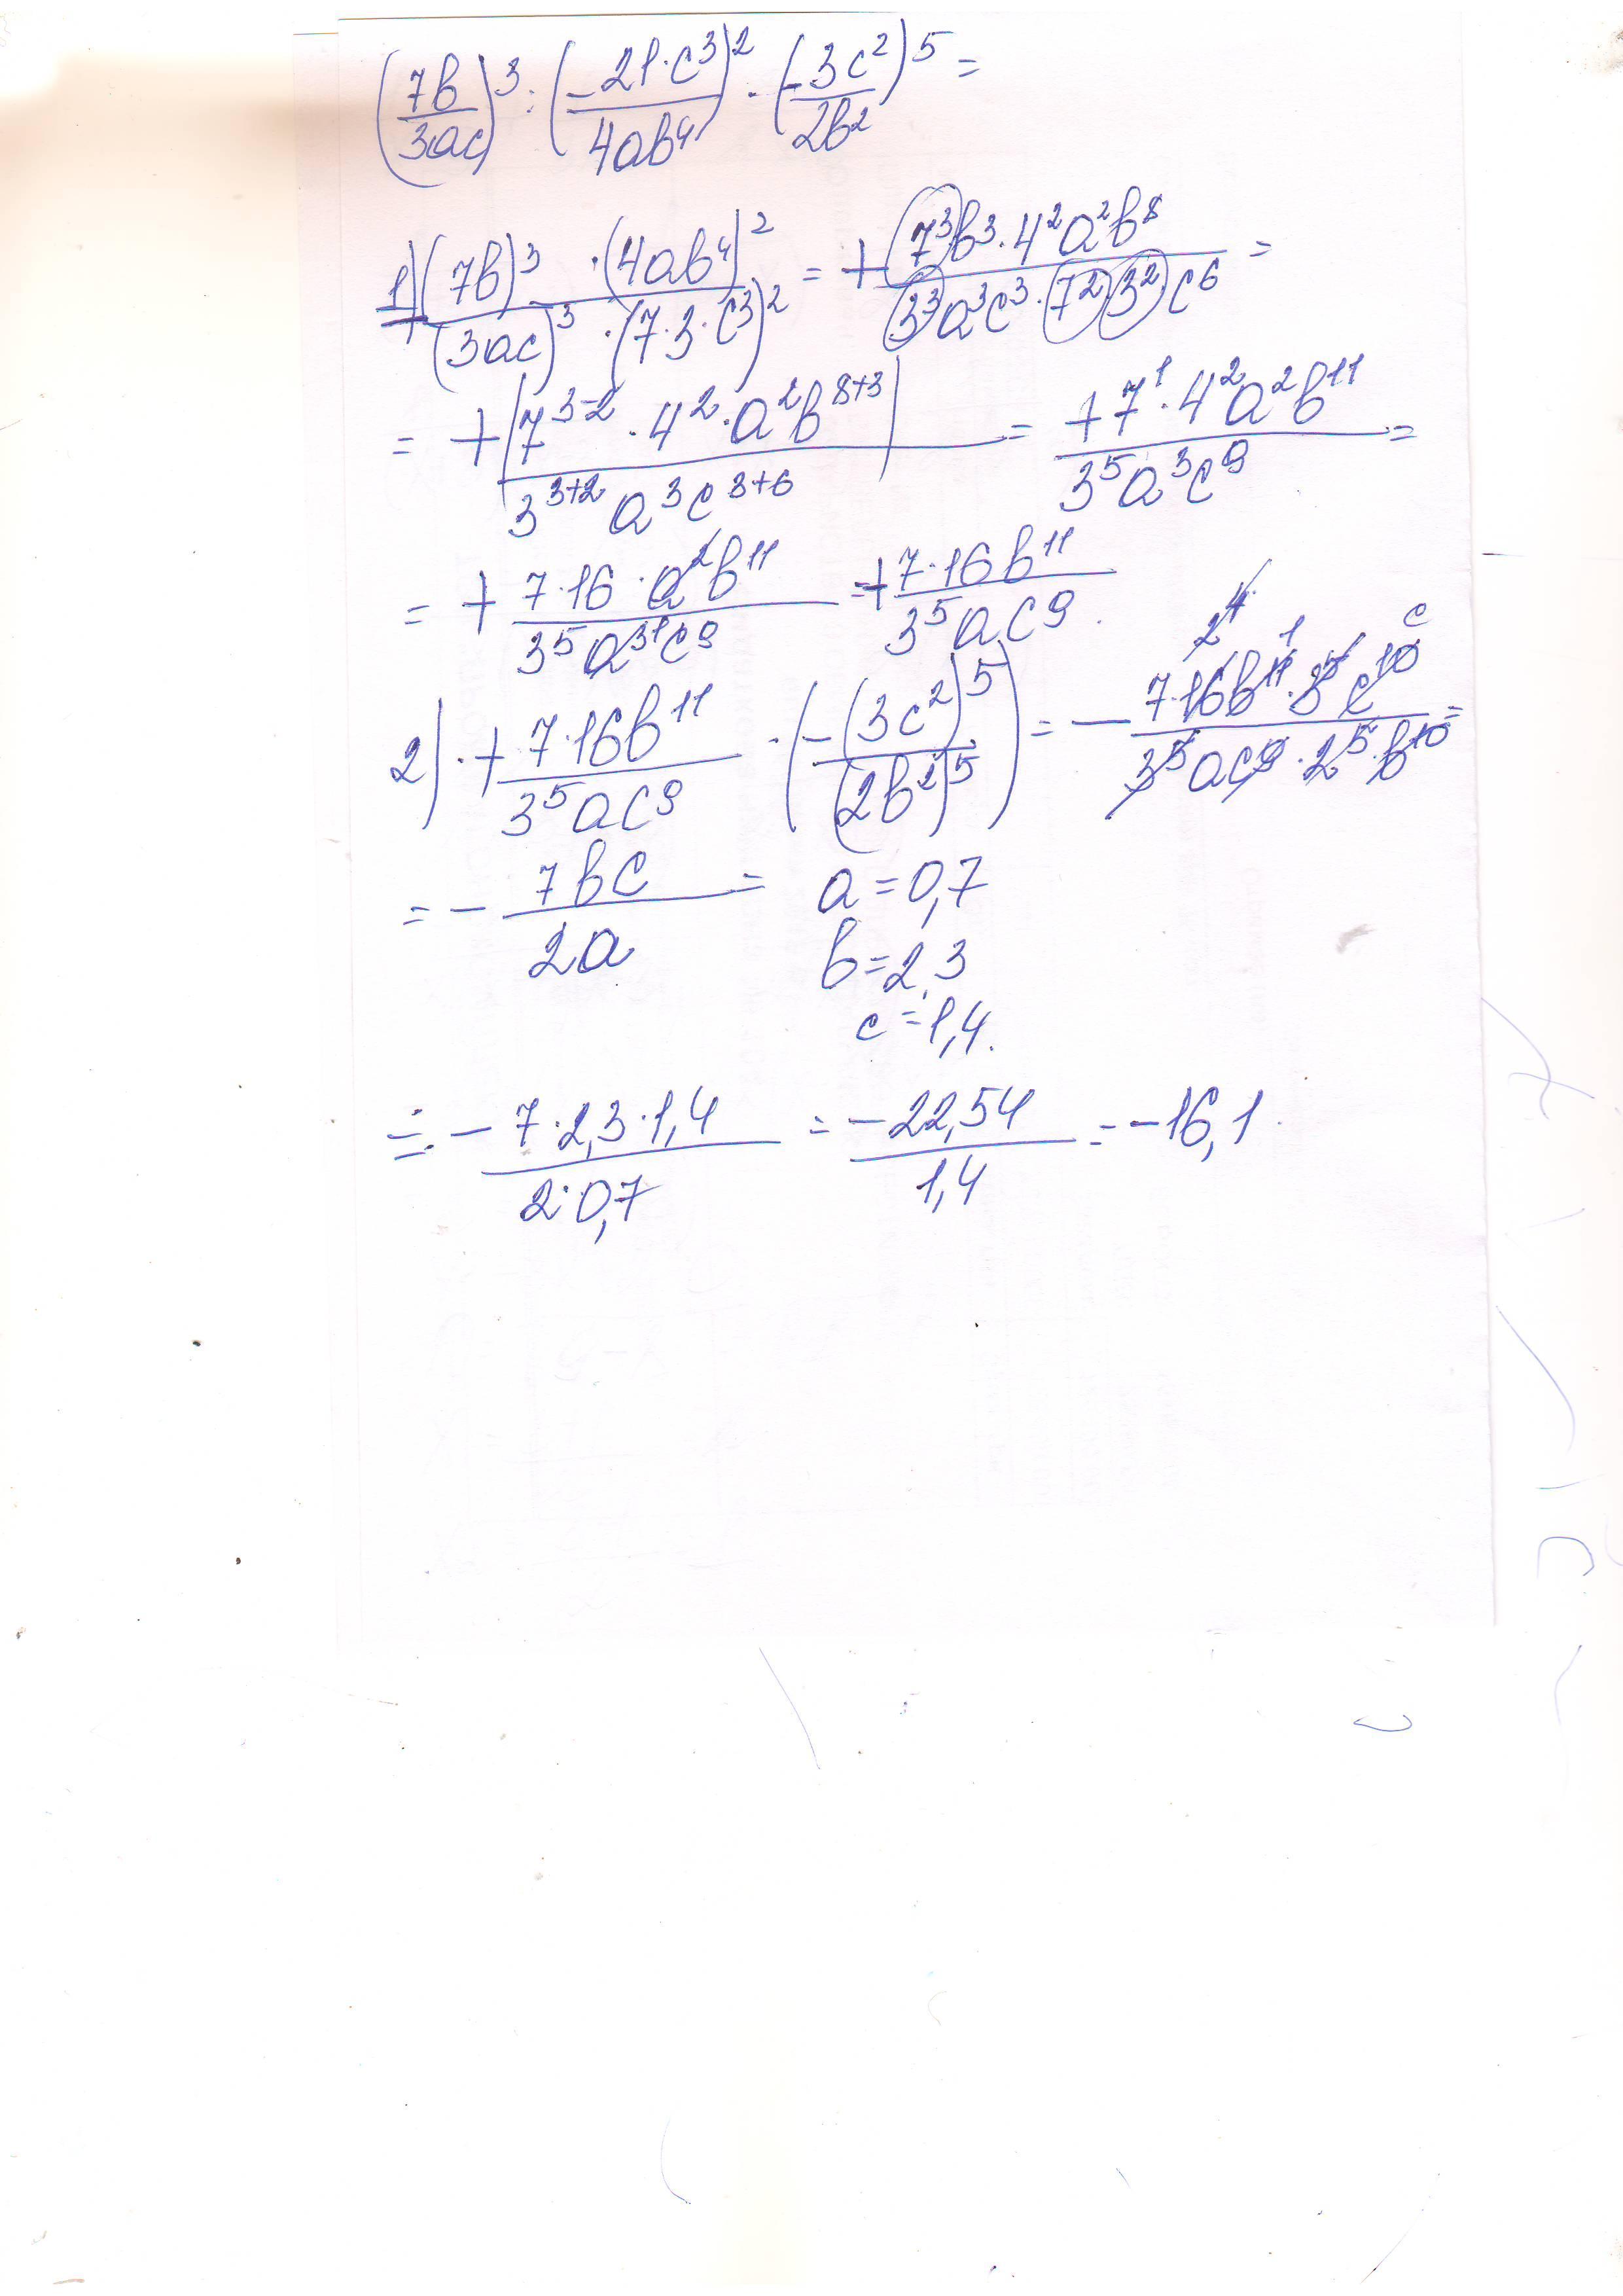 (7b/3ac)³ : (-21·c³/4ab⁴)² · (-3c²/2b²)⁵ =
1) + (7b)³ · (4ab⁴)² / (3ac)³ · (7·3·c³)² = + 7³b³·4²a²b⁸ / 3³a³c³·7²3²c⁶ =
= + (7³⁻²·4²·a²b⁸⁺³ / 3³⁺²a³c³⁺⁶) = +7¹·4²a²b¹¹ / 3⁵a³c⁹ =
= + 7·16·a²b¹¹ / 3⁵a³¹c⁹ = + 7·16b¹¹ / 3⁵ac⁹.
2) · + 7·16b¹¹ / 3⁵ac⁹ · (-(3c²)⁵ / (2b²)⁵) = - 7·16b¹¹·3⁵c¹⁰ / 3⁵ac⁹·2⁵·b¹⁰ =
2⁴ 1 c
= - 7bc / 2a = a = 0,7
b = 2,3
c = 1,4.
= - 7·2,3·1,4 / 2·0,7 = -22,54 / 1,4 = -16,1